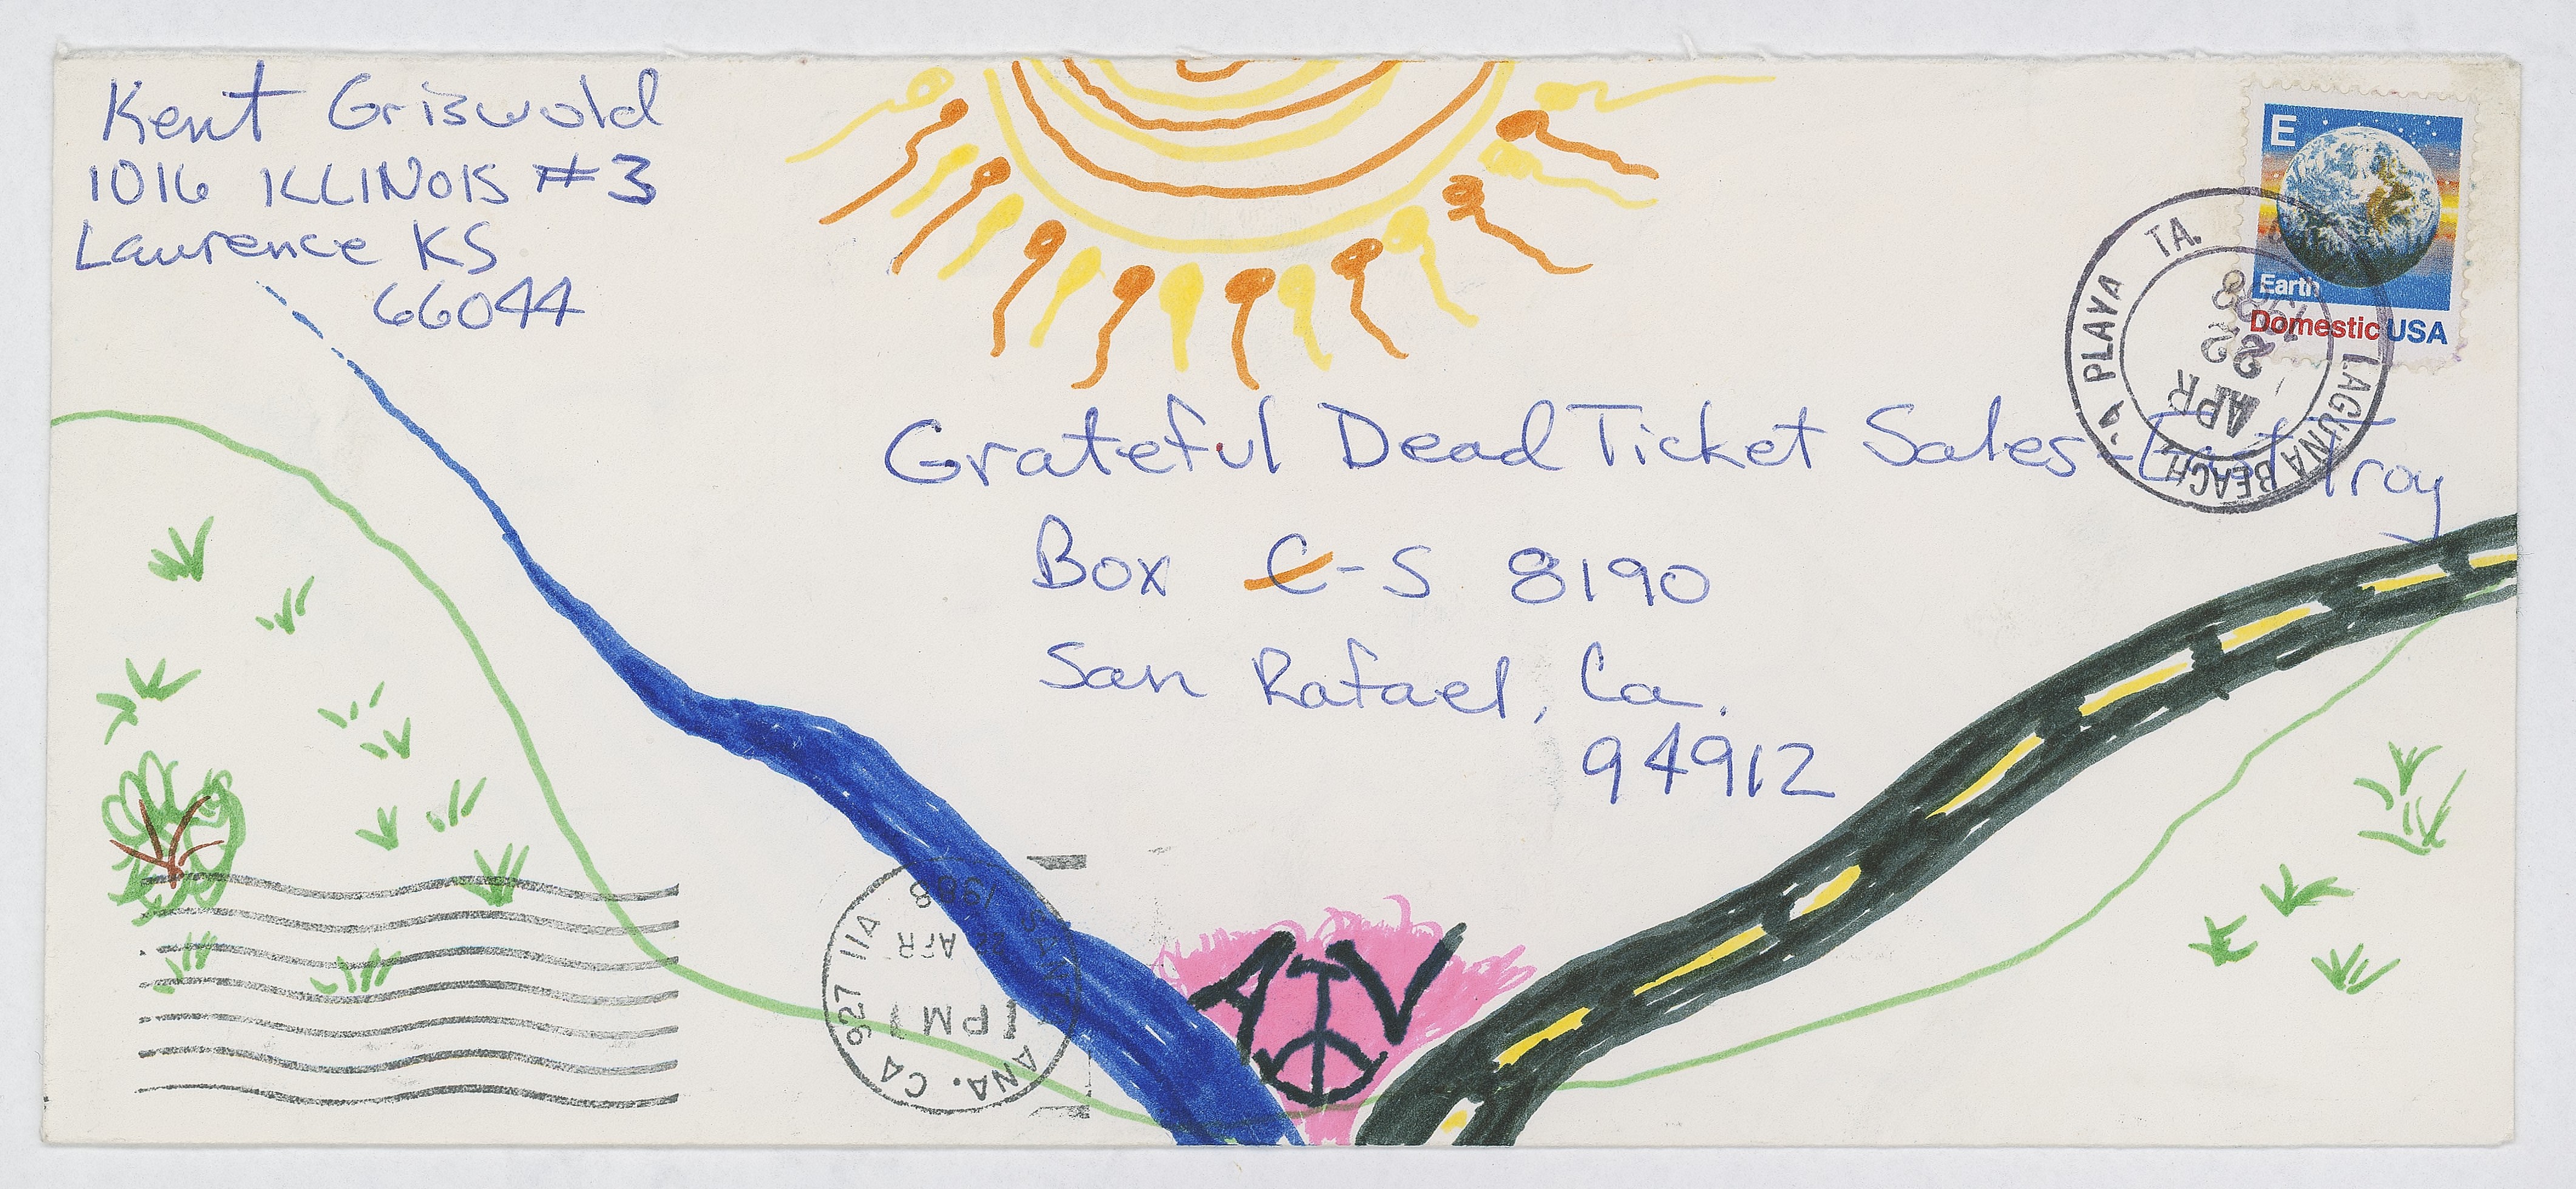 Kent Griswold
1016 ILLINOIS #3
Lawrence KS
66044
E
Earth
Domestic USA
LAGUNA BEACH
PLAYA TA.
APR
22
1988
Grateful Dead Ticket Sales- Troy
Box C-S 8190
San Rafael, Ca.
94912
SANTA ANA. CA 927 11A
PM
22 APR
1988